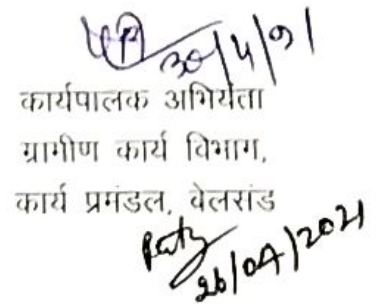 30/4/21
कार्यपालक अभियंता
ग्रामीण कार्य विभाग,
कार्य प्रमंडल, वेलसंड
26/04/2021